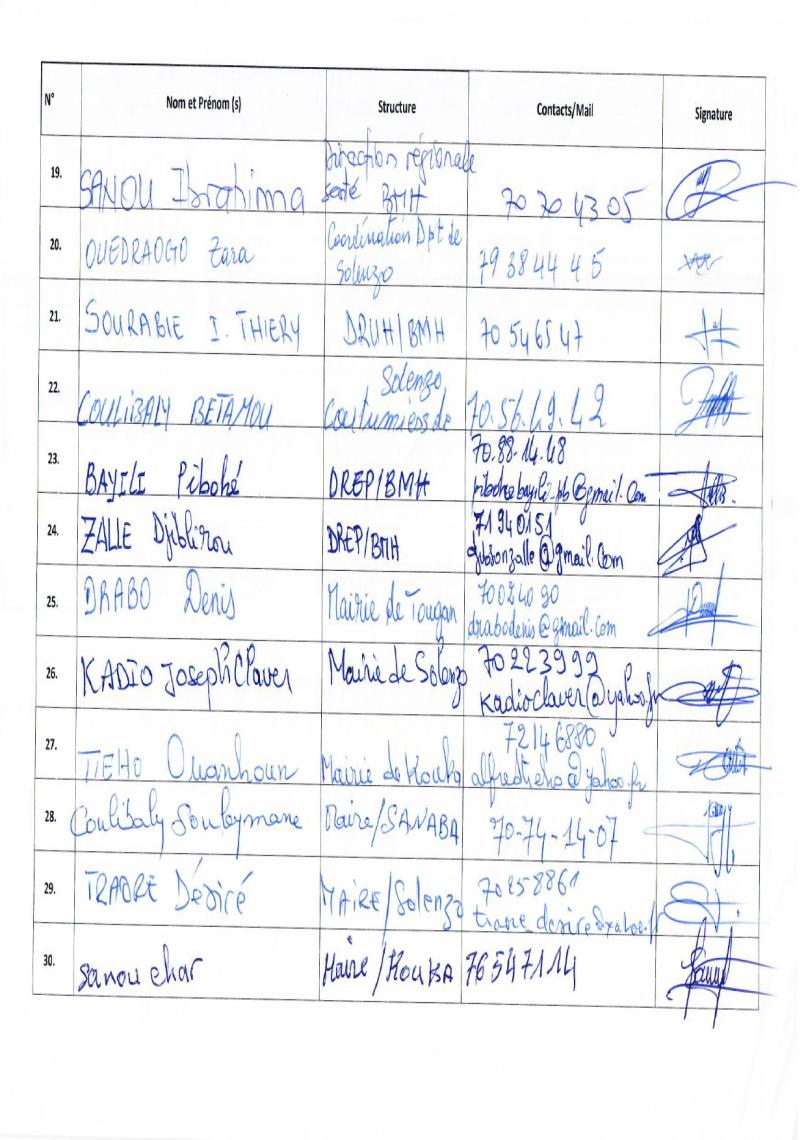 N° Nom et Prénom (s) Structure Contacts/Mail Signature
19. SANOU Ibrahima Direction régionale santé BMH 70 70 43 05
20. OUEDRAOGO Zara Coordination Dpt de Solenzo 79 38 44 45
21. SOURABIE I. THIERY DRUH/BMH 70 54 65 47
22. COULIBALY BETAMOU Solenzo Coutumiers de 70.56.49.42
23. BAYILI Pibohé DREP/BMH 70.88.14.48
pibohebayili.pb@gmail.com
24. ZALLE Djiblirou DREP/BMH 71940151
djibsonzalle@gmail.com
25. DRABO Denis Mairie de Tougan 70024090
drabodenis@gmail.com
26. KADIO Joseph Claver Mairie de Solenzo 70223999
kadioclaver@yahoo.fr
27. TIEHO Ouanhoun Mairie de Kouka 72146880
alfredtieho@yahoo.fr
28. Coulibaly Souleymane Maire/SANABA 70-74-14-07
29. TRAORE Désiré MAIRE/Solenzo 70258861
30. Sanou char Maire/KOUKA 76547114